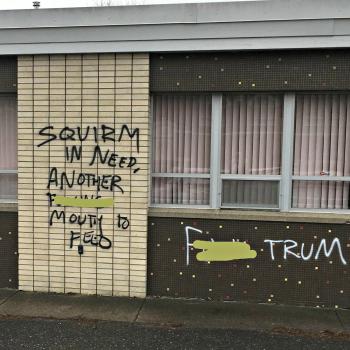 SQUIRM
IN NEED,
ANOTHER
MOUTH to
FEED
TRUM